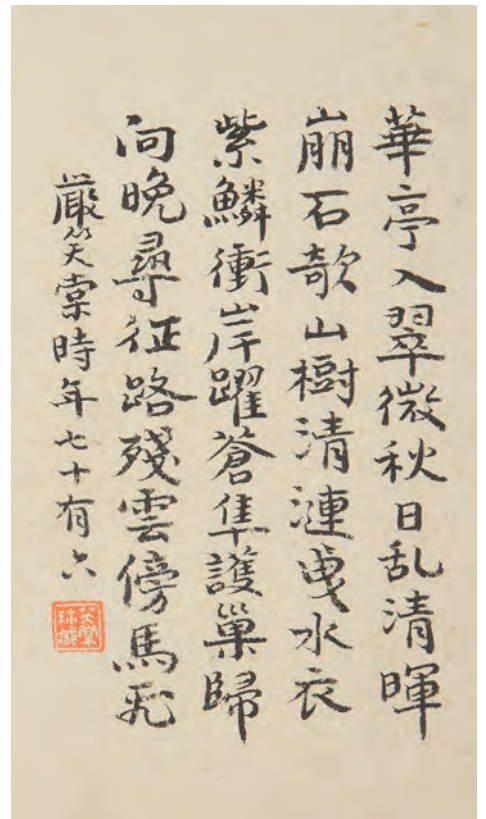 華亭入翠微秋日乱清暉
崩石欹山樹清漣曳水衣
紫鱗衝岸躍蒼隼護巢歸
向晚尋征路殘雲傍馬飛
嚴笑棠時年七十有六